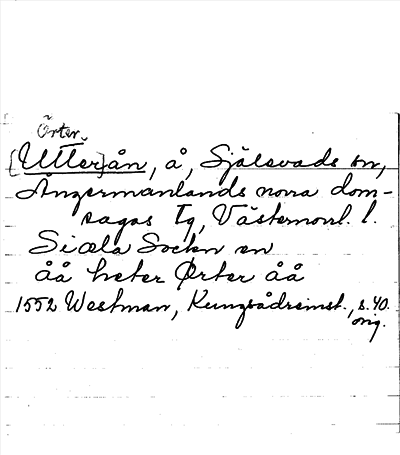 Örter
[Utter]ån, å, Själevads sn,
Ångermanlands norra dom-
sagas tg, Västernorrl. l.
Siæla Socken en
åå heter Ørter åå
1552 Westman, Kungsådreinst., s. 40.
orig.